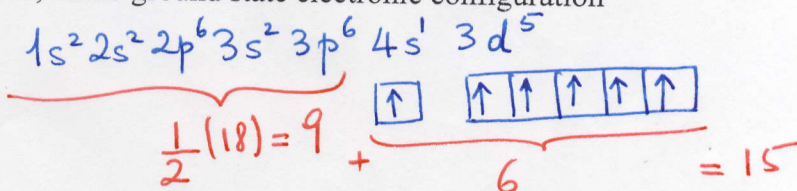 ground state electronic configuration
1s² 2s² 2p⁶ 3s² 3p⁶ 4s¹ 3d⁵
↑ ↑ ↑ ↑ ↑ ↑
1/2 (18) = 9 + 6 = 15